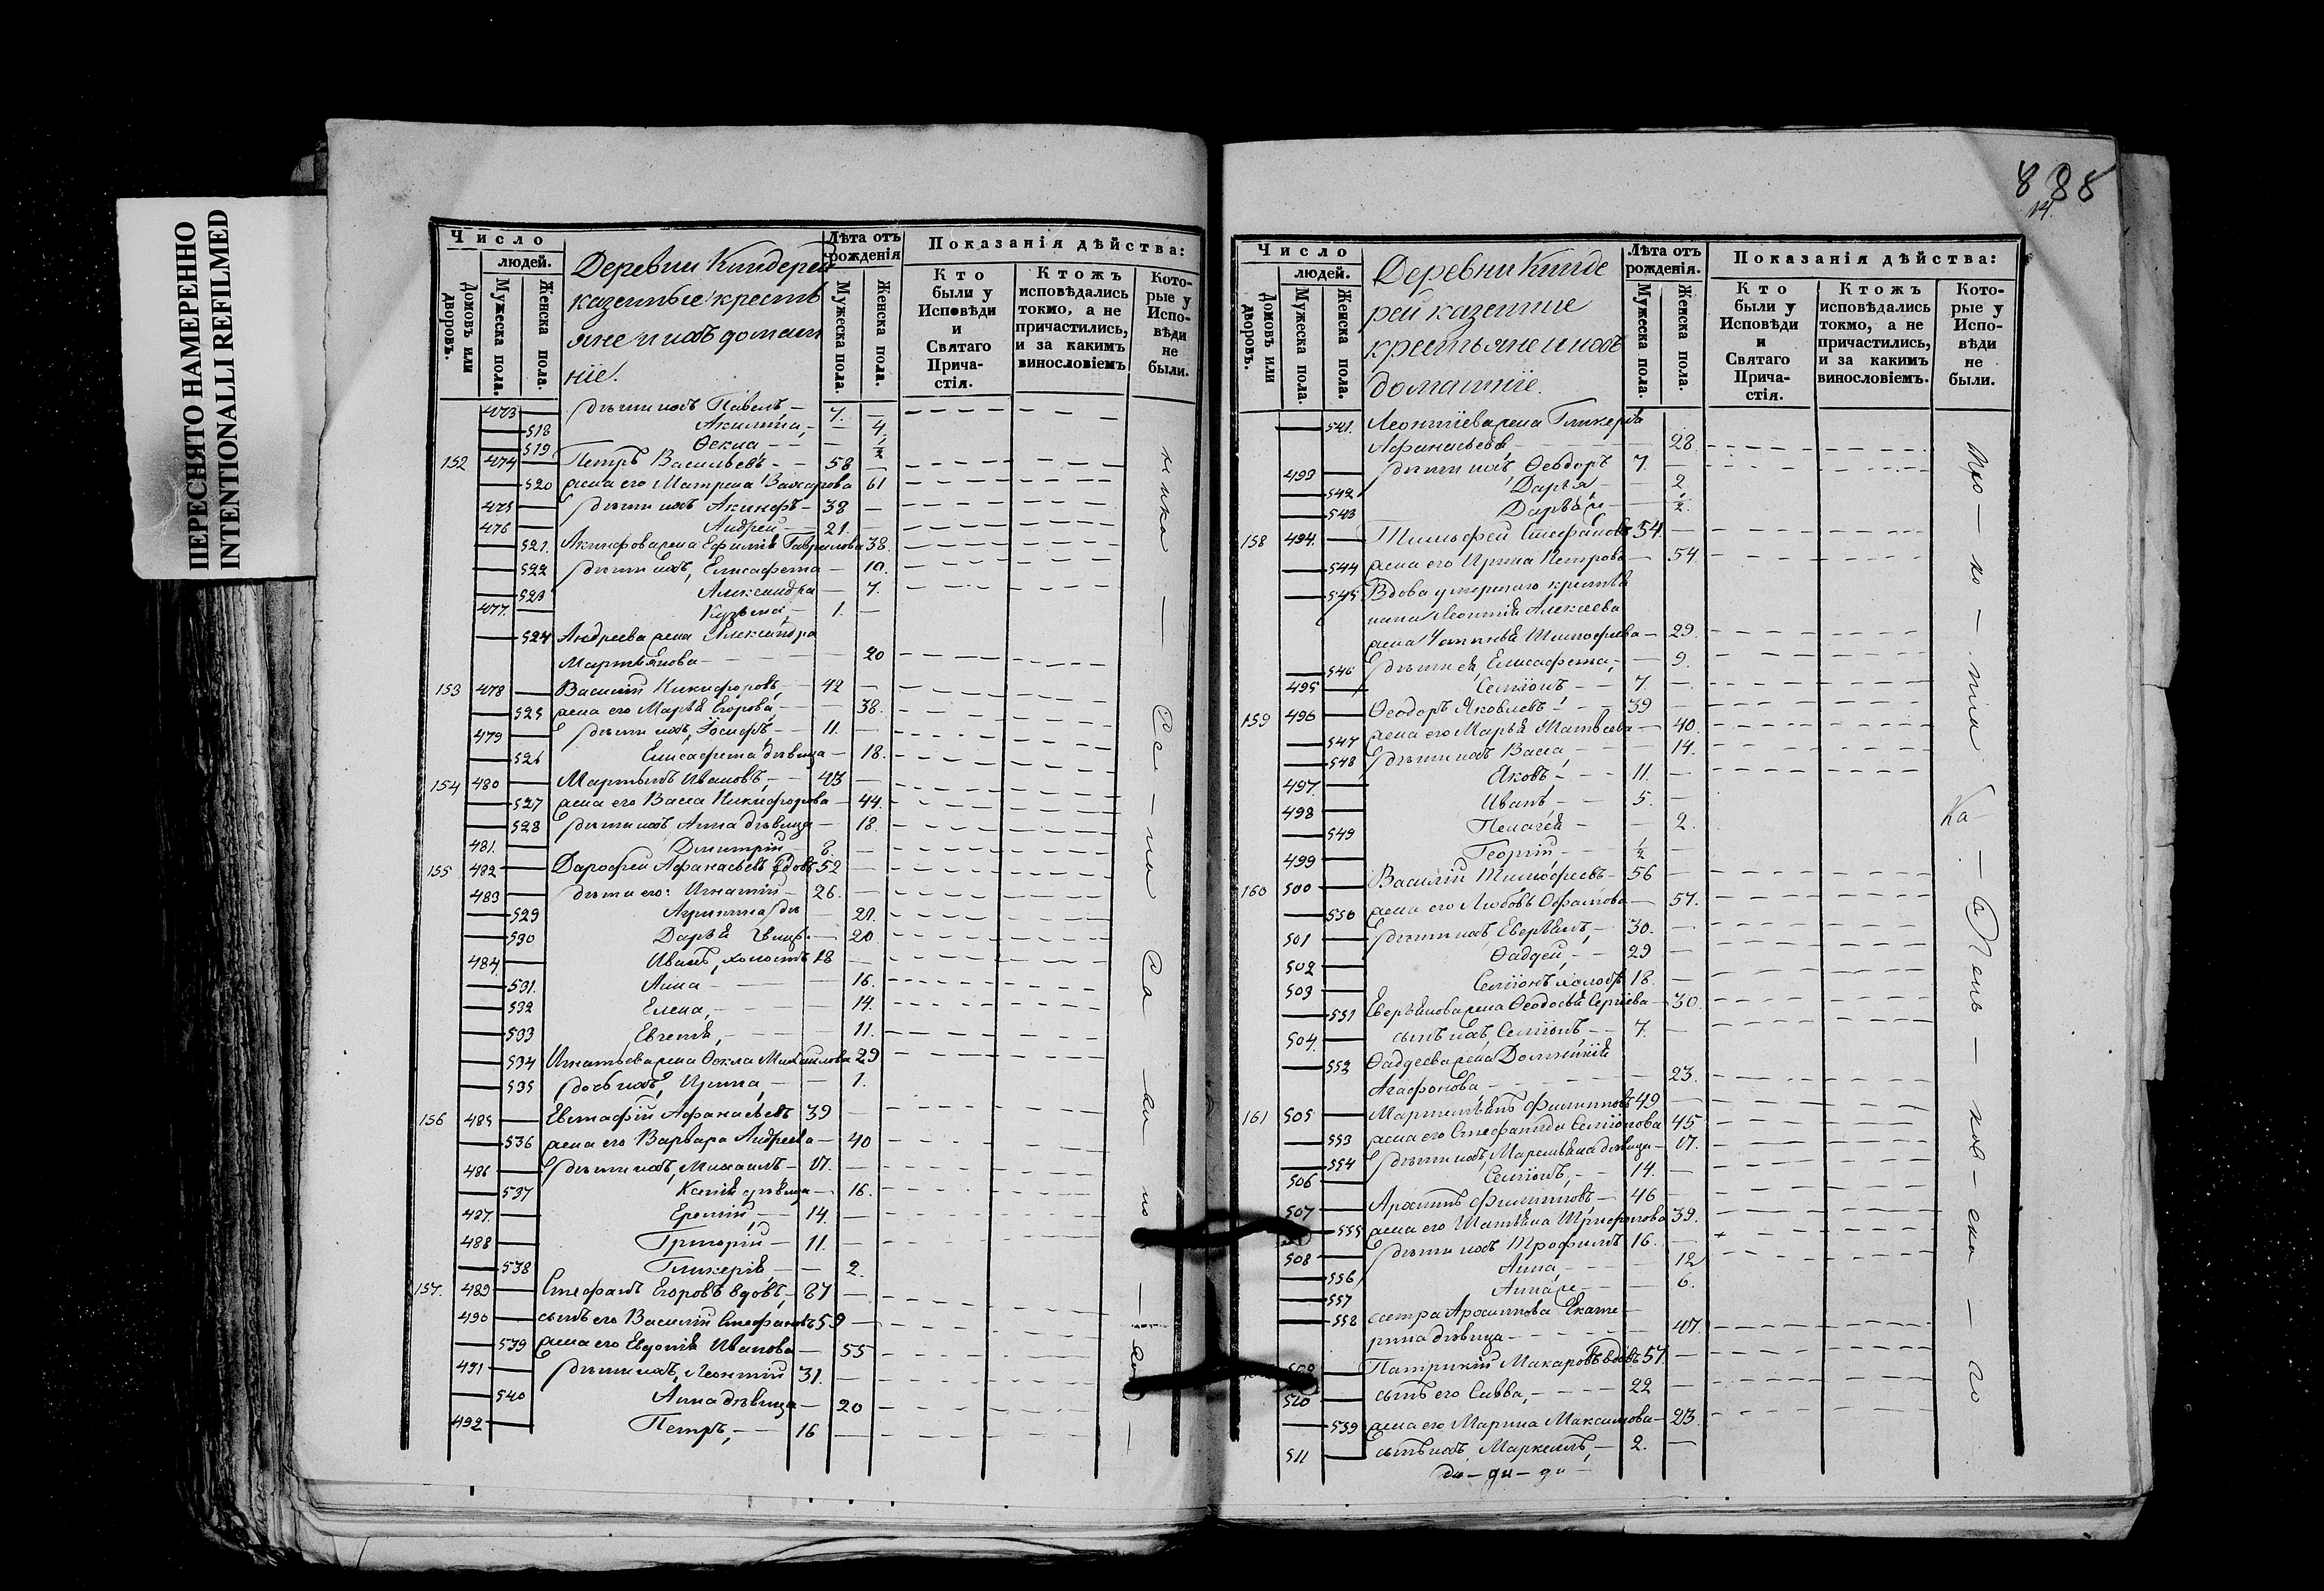 ПЕРЕСНЯТО НАМЕРЕННО
INTENTIONALLI REFILMED
Число
людей.
Домовъ или дворовъ.
Мужеска пола.
Женска пола.
Деревни Киндерей
казенные крестъ
яне и ихъ домаш
ніе.
Лѣта отъ рожденія
Мужеска пола.
Женска пола.
Показанія дѣйства:
Кто были у Исповѣди и Святаго Прича-стія.
Ктожъ исповѣдались токмо, а не причастились, и за какимъ винословіемъ
Кото-рые у Испо-вѣди не были.
473 дѣти ихъ Павелъ, 7.
518 Акилина, 4
519 Ѳекла ½
152 474 Петръ Васильевъ 58
520 жена его Матрена Захарова 61
475 дѣти ихъ Акинфъ 38
476 Андрей 21.
521. Акинфова жена Ефимія Гаврилова 38.
522 дѣти ихъ, Елисафета 10.
523 Александра 7.
477. Кузьма, 1.
524 Андреева жена Александра
Мартьянова 20
153 478 Василій Никифоровъ, 42
525 жена его Марья Егорова, 38.
479 дѣти ихъ, Іосифъ 11.
526 Елисафета дѣвица 18.
154 480 Мартынъ Ивановъ, 43
527 жена его Васса Никифорова 44.
528 дѣти ихъ Анна дѣвица 18.
481. Димитрій 8.
155 482 Дарофей Афанасьевъ вдовъ 52
483 дѣти его: Игнатій 26.
529 Агрипина дѣ 21.
530 Дарья вицы. 20
484. Иванъ, холостъ 18
531. Анна 16.
532 Елена, 14.
533 Евгенія, 11.
534 Игнатьева жена Ѳекла Михайлова 29
535 дочь ихъ, Ирина, 1.
156 485 Евстафій Афанасьевъ 39
536 жена его Варвара Андреева 40
486 дѣти ихъ, Михаилъ 17.
537 Ксенія дѣвица 16.
487. Еремій, 14.
488 Григорій 11.
538 Гликерія 2.
157. 489 Стефанъ Егоровъ вдовъ, 87
490 сынъ его Василій Стефановъ 59
539 жена его Евдокія Иванова 55
491 дѣти ихъ, Леонтій 31.
540 Анна дѣвица 20
492 Петръ, 16
888
14.
Число
людей.
Домовъ или дворовъ.
Мужеска пола.
Женска пола.
Деревни Кинде
рей казенные
крестьяне и ихъ
домашніе.
Лѣта отъ рожденія.
Мужеска пола.
Женска пола.
Показанія дѣйства:
Кто были у Исповѣди и Святаго Прича-стія.
Ктожъ исповѣдались токмо, а не причастились, и за какимъ винословіемъ.
Кото-рые у Испо-вѣди не были.
541. Леонтіева жена Гликерія
Афанасьева 28.
493 дѣти ихъ Ѳеодоръ 7.
542 Дарья 2
543 Дарья же ½.
158 494. Тимофей Стефановъ 54.
544 жена его Ирина Петрова 54.
545 Вдова умершаго крестья
нина Леонтія Алексеева
жена Тимофеева 29.
546 дѣти ея, Елисафета, 9.
495 Семіонъ 7.
159 496 Ѳеодоръ Яковлевъ 39
547 жена его Марья Матвеева 40.
548 дѣти ихъ Васса, 14.
497. Яковъ 11.
498 Иванъ 5.
549 Пелагея 2.
499 Георгій ½
160 500 Василій Тимофеевъ 56
550 жена его Любовь 57.
501 дѣти ихъ, 30.
502 Ѳадей, 29
503 Семіонъ холостъ 18.
551 жена Ѳеодосья Сергіева 30.
504. сынъ ихъ, Семіонъ 7.
552 Ѳадеева жена
Агафонова 23.
161 505 Филиповъ 49
553 жена его Стефанида Семіонова 45
554 дѣти ихъ, дѣвица 17.
506 Семіонъ, 14.
507 Филиповъ 46
555 жена его Татьяна 39.
508 дѣти ихъ Трофимъ 16.
556 Анна, 12
557 Анна же 6.
558 сестра Екате
рина дѣвица 47.
509 Патрикій Макаровъ вдовъ 57
510 сынъ его Савва, 22
539 жена его Марина Максимова 23.
511 сынъ ихъ, Маркеллъ, 2.